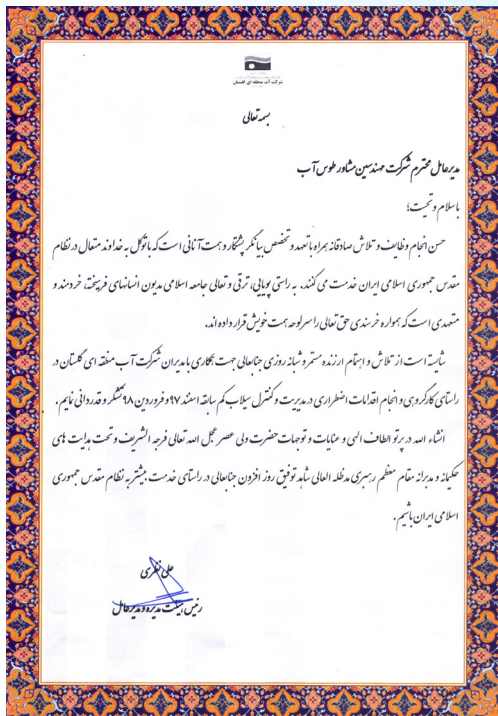 شرکت آب منطقه ای گلستان
بسمه تعالی
مدیرعامل محترم شرکت مهندسین مشاور طوس آب
باسلام و تحیت؛
حسن انجام وظایف و تلاش صادقانه همراه با تعهد و تخصص بیانگر پشتکار و همت آنانی است که با توکل به خداوند متعال در نظام
مقدس جمهوری اسلامی ایران خدمت می کنند. به راستی پویایی، ترقی و تعالی جامعه اسلامی مدیون انسانهای فرهیخته، خردمند و
متعهدی است که همواره خرسندی حق تعالی را سرلوحه همت خویش قرار داده اند.
شایسته است از تلاش و اهتمام ارزنده مستمر و شبانه روزی جنابعالی جهت همکاری با مدیران شرکت آب منطقه ای گلستان در
راستای کارگروهی و انجام اقدامات اضطراری در مدیریت و کنترل سیلاب کم سابقه اسفند ۹۷ و فروردین ۹۸ تشکر و قدردانی نمایم.
انشاء الله در پرتو الطاف الهی و عنایات و توجهات حضرت ولی عصر عجل الله تعالی فرجه الشریف و تحت هدایت های
حکیمانه و مدبرانه مقام معظم رهبری مدظله العالی شاهد توفیق روز افزون جنابعالی در راستای خدمت بیشتر به نظام مقدس جمهوری
اسلامی ایران باشیم.
علی نظری
رئیس هیئت مدیره و مدیرعامل